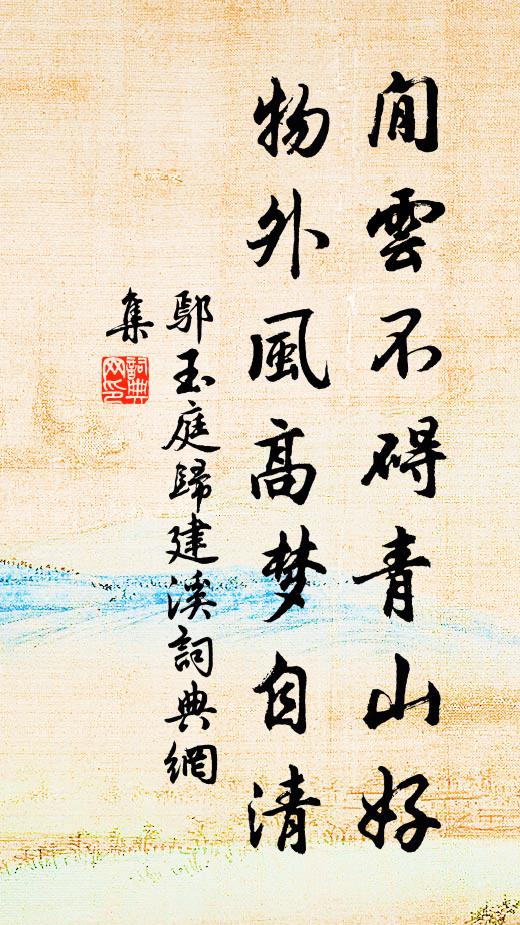 閒雲不碍青山好
物外風高梦自清
鄔玉庭歸建溪詞典網
集
詞典
网印